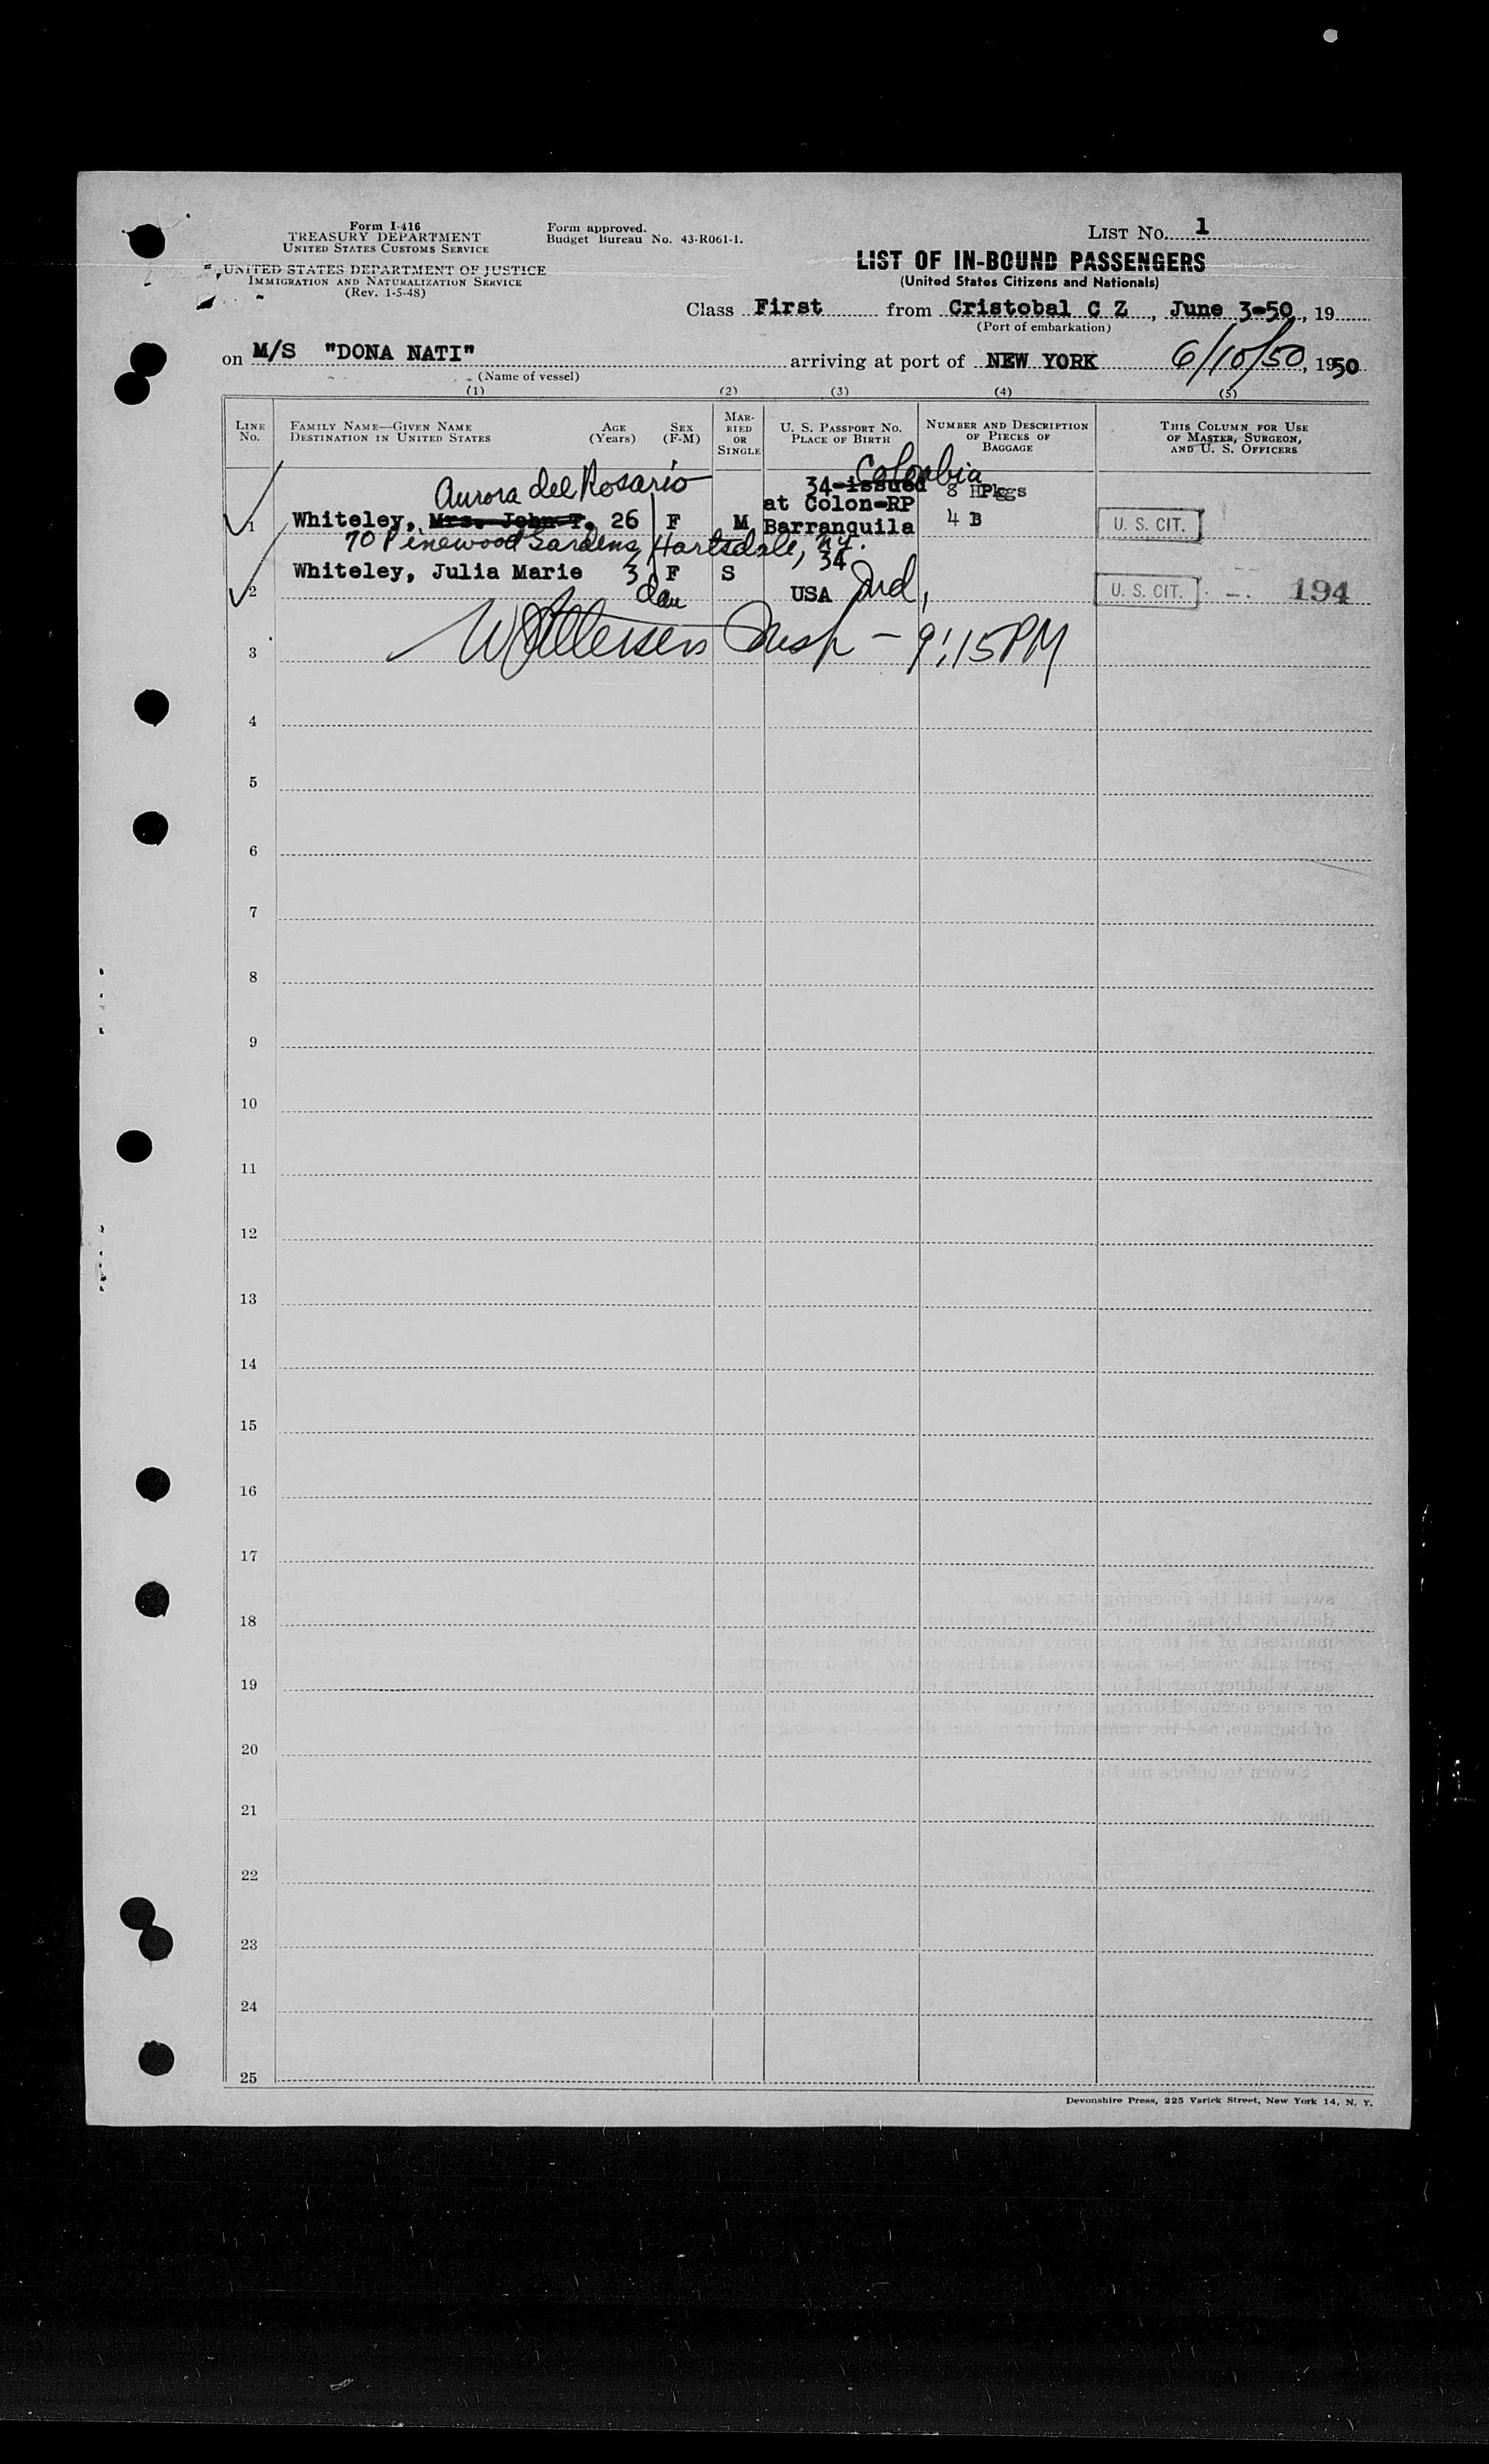 Form I-416
TREASURY DEPARTMENT
UNITED STATES CUSTOMS SERVICE
UNITED STATES DEPARTMENT OF JUSTICE
IMMIGRATION AND NATURALIZATION SERVICE
(Rev. 1-5-48)
Form approved.
Budget Bureau No. 43-R061-1.
LIST No. 1
LIST OF IN-BOUND PASSENGERS
(United States Citizens and Nationals)
Class First from Cristobal C Z, June 3-50, 19
(Port of embarkation)
on M/S "DONA NATI" arriving at port of NEW YORK 6/10/50, 1950
(Name of vessel)
(1) (2) (3) (4) (5)
LINE No. FAMILY NAME—GIVEN NAME DESTINATION IN UNITED STATES AGE (Years) SEX (F-M) MARRIED OR SINGLE U. S. PASSPORT No. PLACE OF BIRTH NUMBER AND DESCRIPTION OF PIECES OF BAGGAGE THIS COLUMN FOR USE OF MASTER, SURGEON, AND U. S. OFFICERS
Colombia
Aurora del Rosario 34-issued 8 Pkgs
at Colon-RP
1 Whiteley, Mrs. John T. 26 F M Barranquila 4 B U. S. CIT.
70 Pinewood Gardens, Hartsdale, N.Y.
34
Whiteley, Julia Marie 3 F S
2 dau USA Md, U. S. CIT. 194
3 Insp - 9:15PM
4
5
6
7
8
9
10
11
12
13
14
15
16
17
18
19
20
21
22
23
24
25
Devonshire Press, 225 Varick Street, New York 14, N. Y.